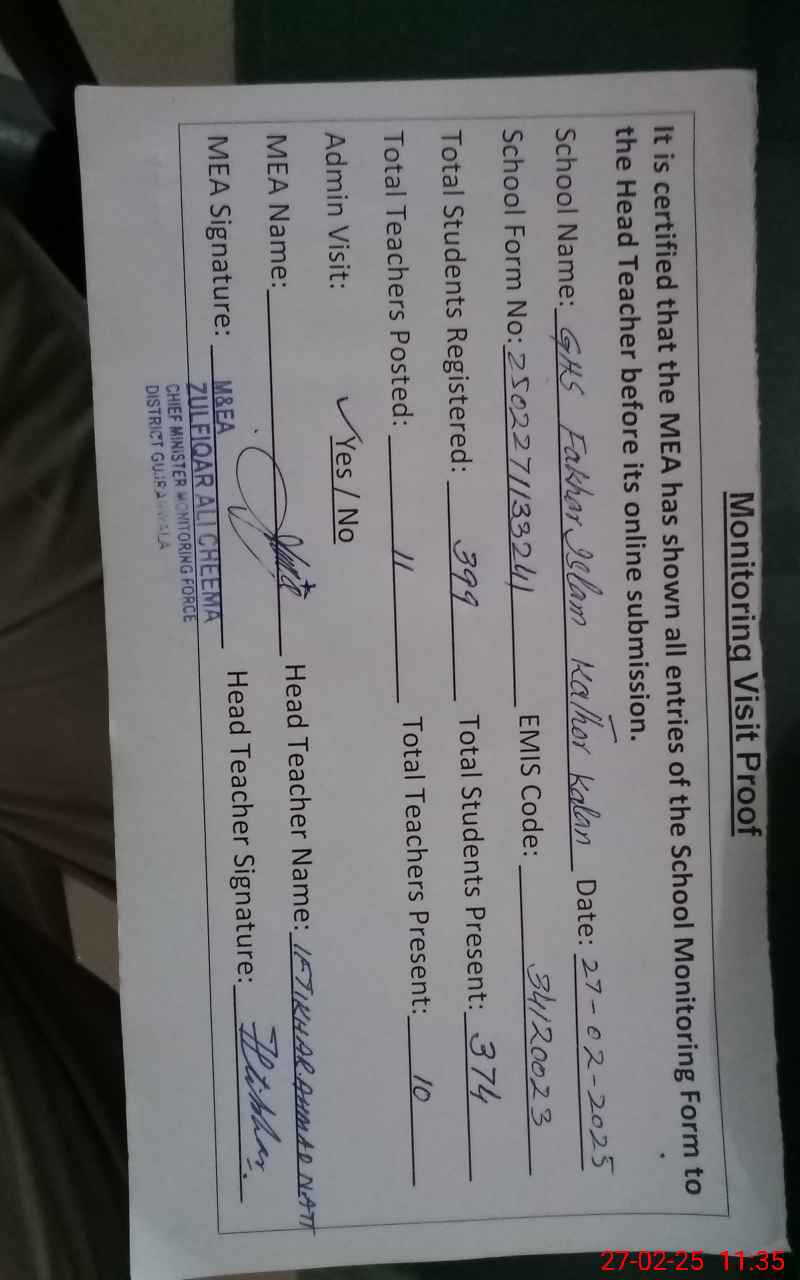 Monitoring Visit Proof
It is certified that the MEA has shown all entries of the School Monitoring Form to
the Head Teacher before its online submission.
School Name: GHS Fakhar Islam Kathor Kalan Date: 27-02-2025
School Form No: 2502271133241 EMIS Code: 34120023
Total Students Registered: 399 Total Students Present: 374
Total Teachers Posted: 11 Total Teachers Present: 10
Admin Visit: ✓ Yes / No
MEA Name: Head Teacher Name: IFTIKHAR AHMAD NATT
MEA Signature: Head Teacher Signature: Iftikhar
M&EA
ZULFIQAR ALI CHEEMA
CHIEF MINISTER MONITORING FORCE
DISTRICT GUJRANWALA
27-02-25 11:35